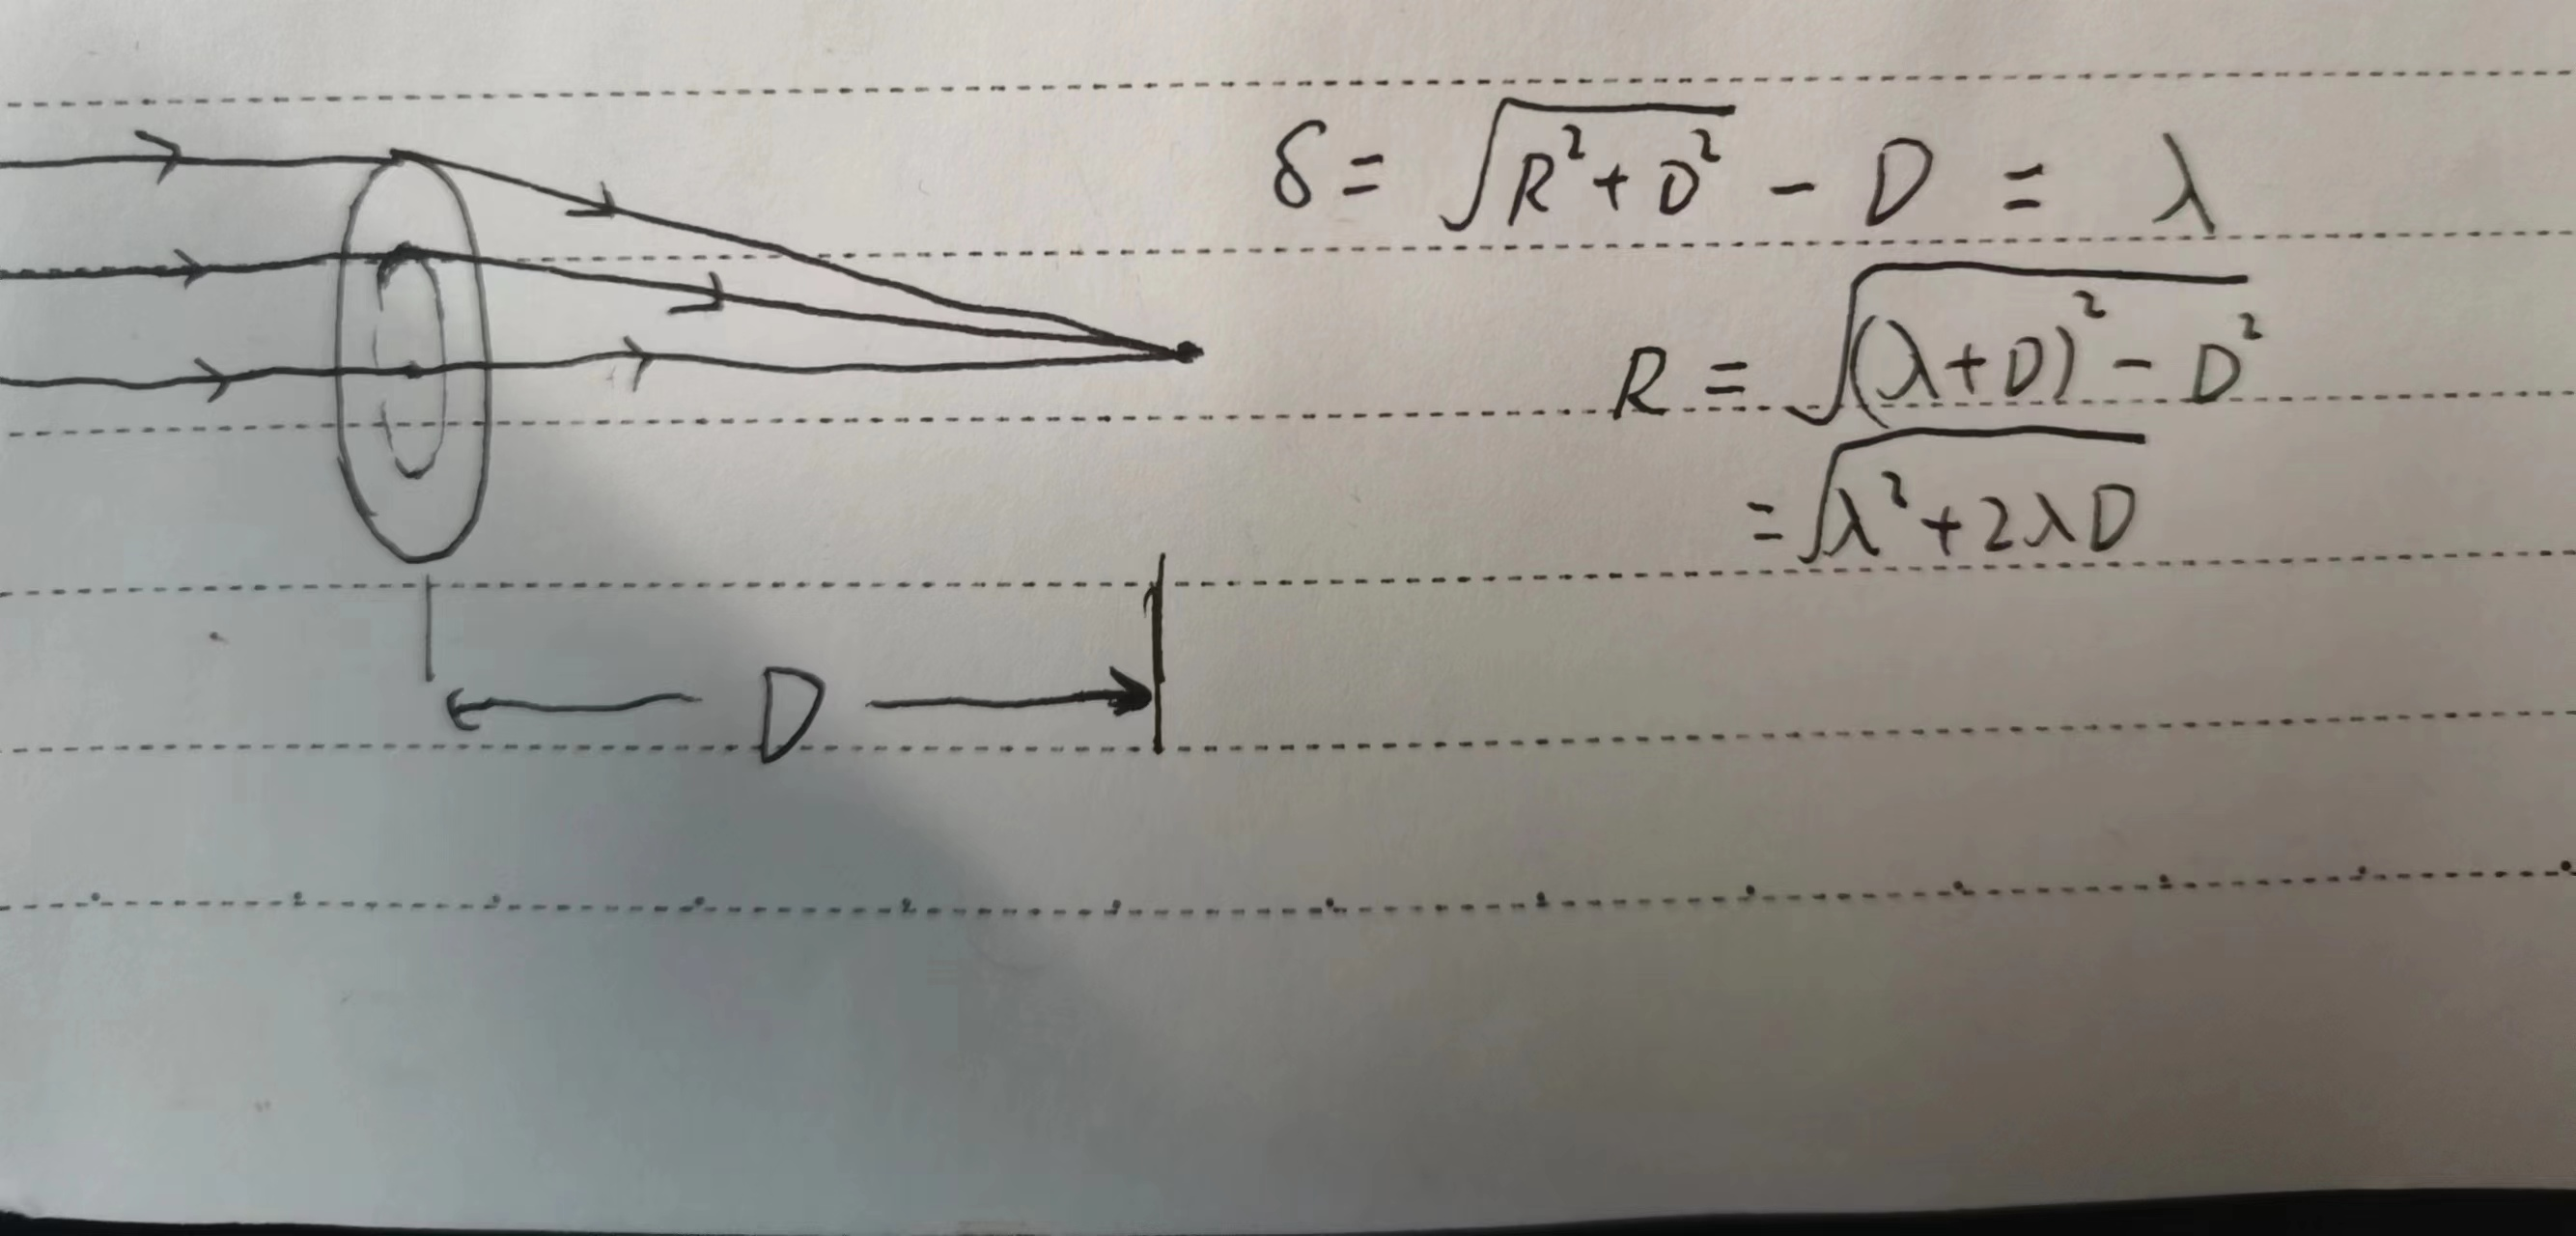 δ = √(R² + D²) - D = λ
R = √((λ+D)² - D²)
= √(λ² + 2λD)
D